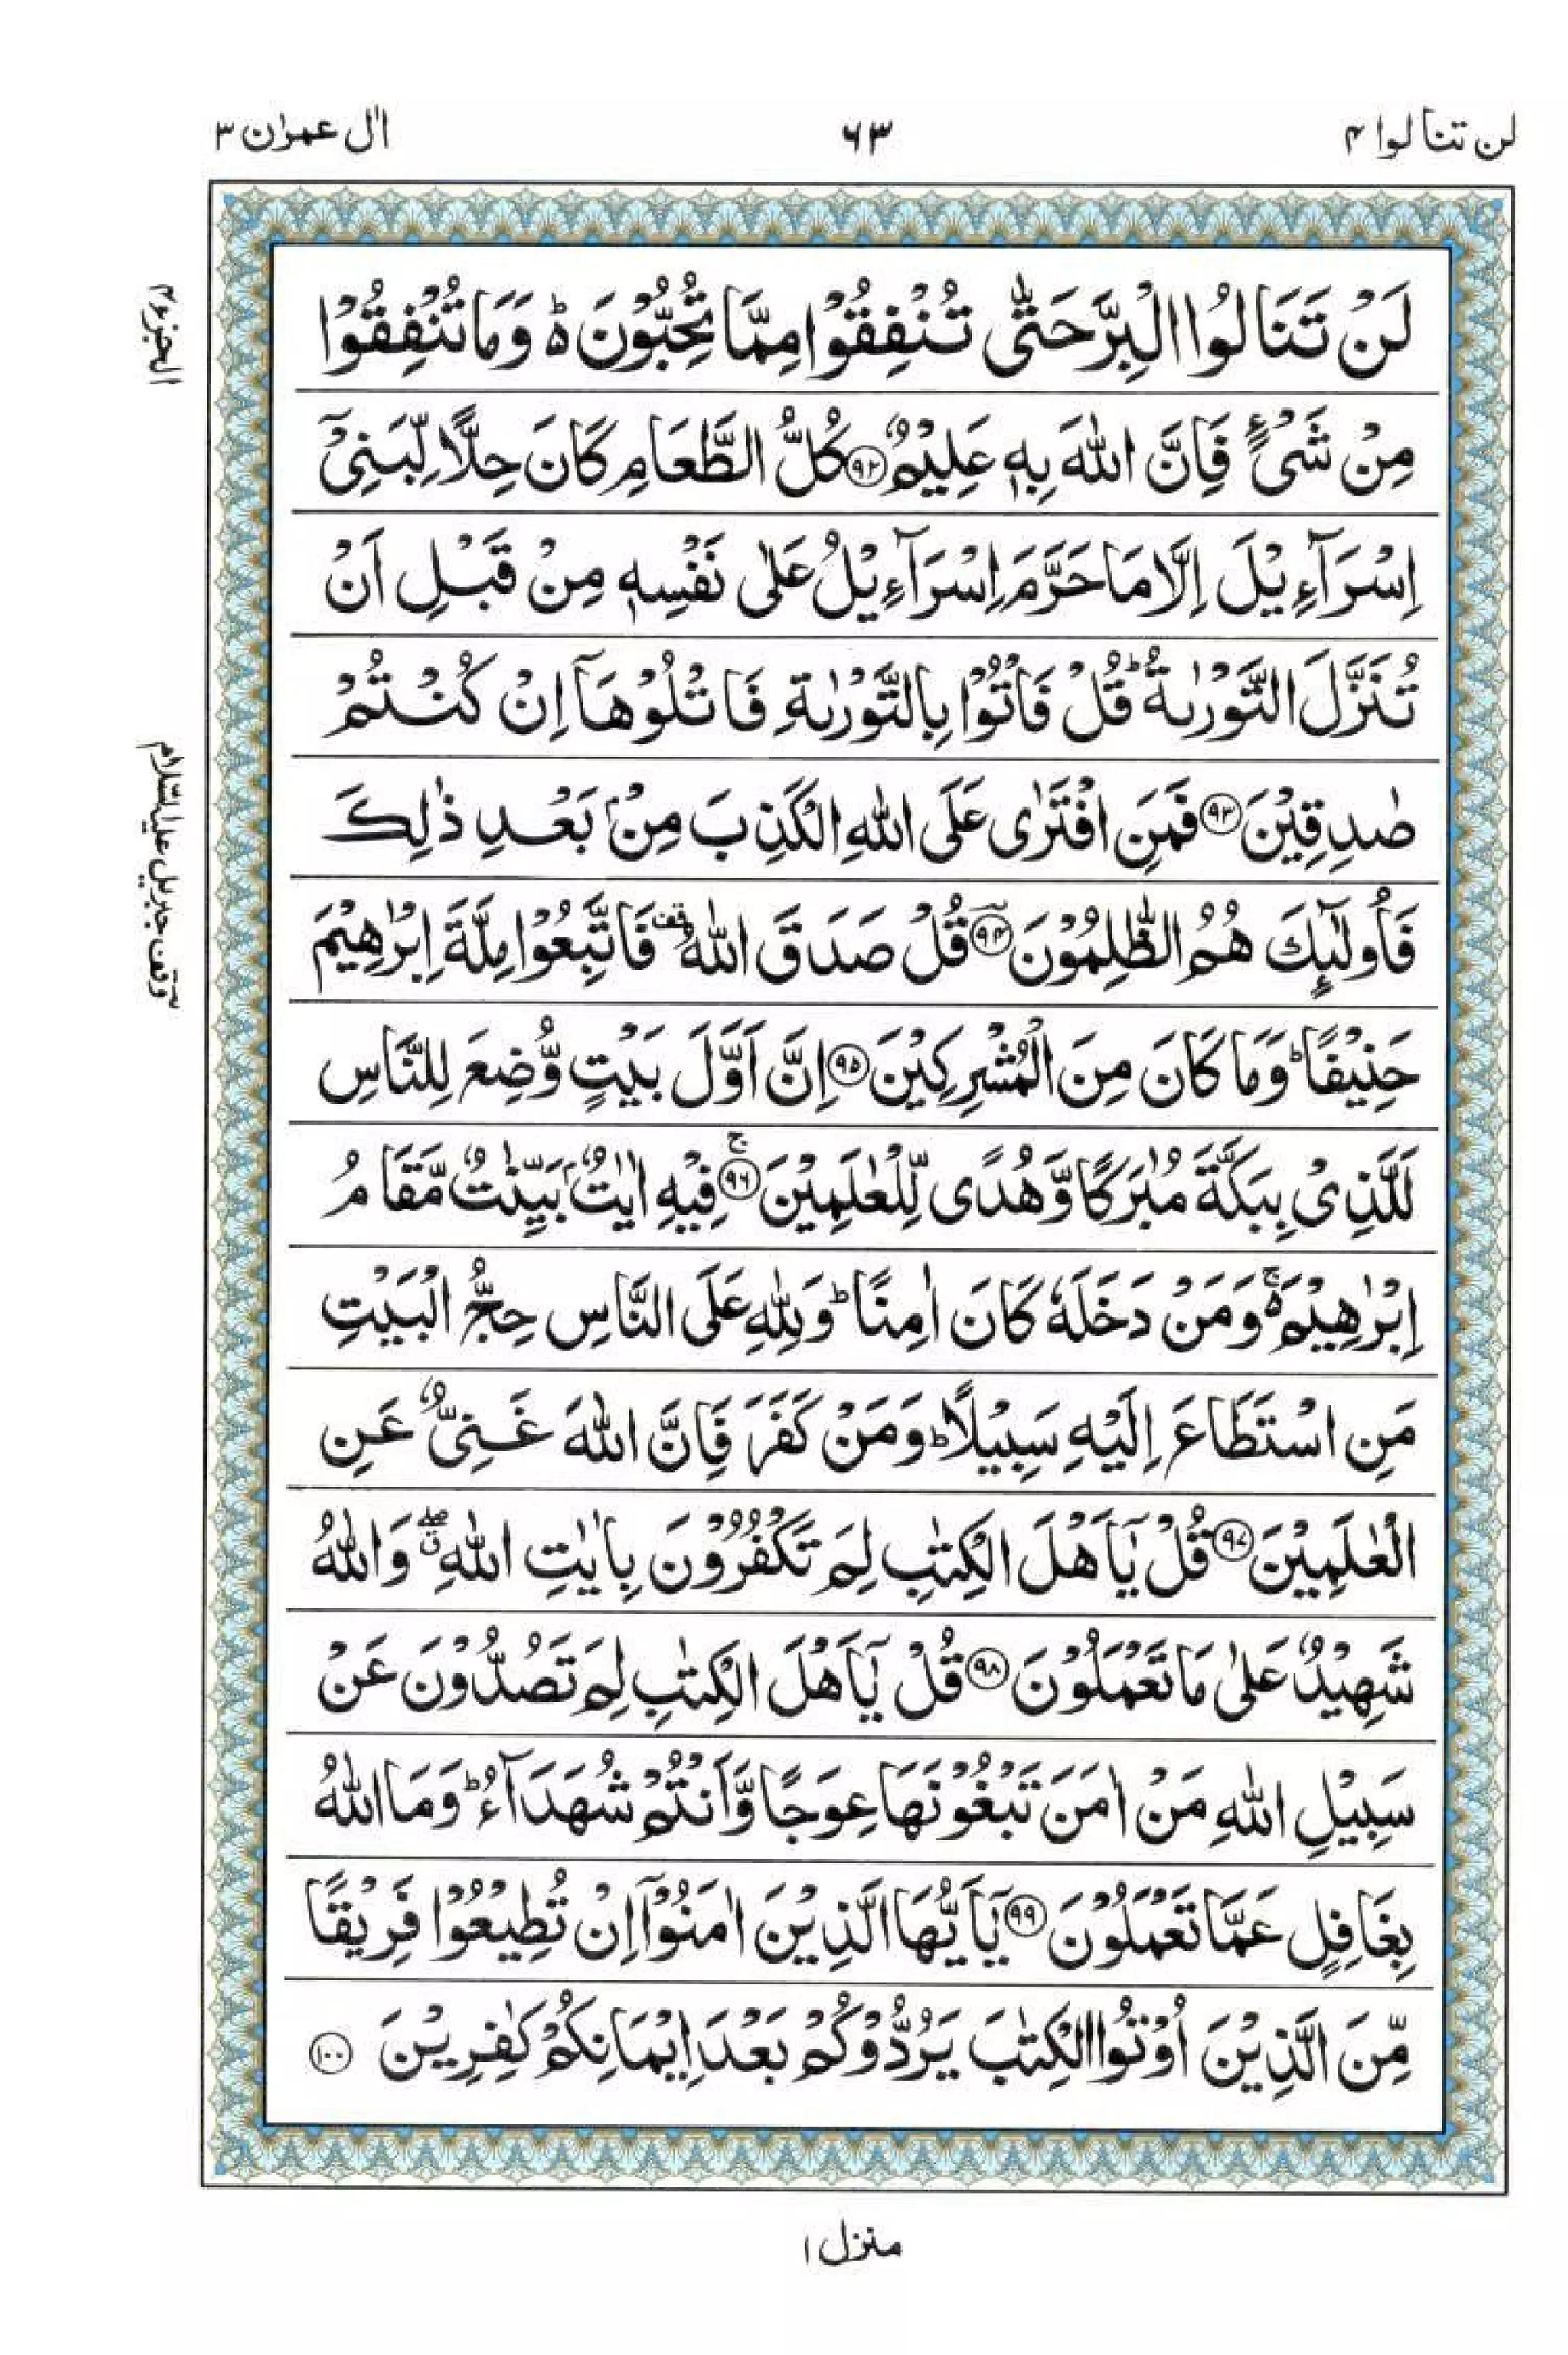 لن تنالوا ۴
۶۳
اٰل عمرٰن ۳
لَنْ تَنَالُوا الْبِرَّ حَتّٰى تُنْفِقُوْا مِمَّا تُحِبُّوْنَ ؕ وَمَا تُنْفِقُوْا
مِنْ شَىْءٍ فَاِنَّ اللّٰهَ بِهٖ عَلِيْمٌ ﴿۹۲﴾ كُلُّ الطَّعَامِ كَانَ حِلًّا لِّبَنِىْۤ
اِسْرَآءِيْلَ اِلَّا مَا حَرَّمَ اِسْرَآءِيْلُ عَلٰى نَفْسِهٖ مِنْ قَبْلِ اَنْ
تُنَزَّلَ التَّوْرٰىةُ ؕ قُلْ فَاْتُوْا بِالتَّوْرٰىةِ فَاتْلُوْهَاۤ اِنْ كُنْتُمْ
صٰدِقِيْنَ ﴿۹۳﴾ فَمَنِ افْتَرٰى عَلَى اللّٰهِ الْكَذِبَ مِنْۢ بَعْدِ ذٰلِكَ
فَاُولٰٓئِكَ هُمُ الظّٰلِمُوْنَ ﴿۹۴﴾ قُلْ صَدَقَ اللّٰهُ قف فَاتَّبِعُوْا مِلَّةَ اِبْرٰهِيْمَ
حَنِيْفًا ؕ وَمَا كَانَ مِنَ الْمُشْرِكِيْنَ ﴿۹۵﴾ اِنَّ اَوَّلَ بَيْتٍ وُّضِعَ لِلنَّاسِ
لَلَّذِىْ بِبَكَّةَ مُبٰرَكًا وَّهُدًى لِّلْعٰلَمِيْنَ ﴿۹۶﴾ۚ فِيْهِ اٰيٰتٌۢ بَيِّنٰتٌ مَّقَامُ
اِبْرٰهِيْمَ ۚ۬ وَمَنْ دَخَلَهٗ كَانَ اٰمِنًا ؕ وَلِلّٰهِ عَلَى النَّاسِ حِجُّ الْبَيْتِ
مَنِ اسْتَطَاعَ اِلَيْهِ سَبِيْلًا ؕ وَمَنْ كَفَرَ فَاِنَّ اللّٰهَ غَنِىٌّ عَنِ
الْعٰلَمِيْنَ ﴿۹۷﴾ قُلْ يٰۤاَهْلَ الْكِتٰبِ لِمَ تَكْفُرُوْنَ بِاٰيٰتِ اللّٰهِ ۖق وَاللّٰهُ
شَهِيْدٌ عَلٰى مَا تَعْمَلُوْنَ ﴿۹۸﴾ قُلْ يٰۤاَهْلَ الْكِتٰبِ لِمَ تَصُدُّوْنَ عَنْ
سَبِيْلِ اللّٰهِ مَنْ اٰمَنَ تَبْغُوْنَهَا عِوَجًا وَّاَنْتُمْ شُهَدَآءُ ؕ وَمَا اللّٰهُ
بِغَافِلٍ عَمَّا تَعْمَلُوْنَ ﴿۹۹﴾ يٰۤاَيُّهَا الَّذِيْنَ اٰمَنُوْۤا اِنْ تُطِيْعُوْا فَرِيْقًا
مِّنَ الَّذِيْنَ اُوْتُوا الْكِتٰبَ يَرُدُّوْكُمْ بَعْدَ اِيْمَانِكُمْ كٰفِرِيْنَ ﴿۱۰۰﴾
الجزء ۴
وقف جبريل عليه السلام
منزل ۱